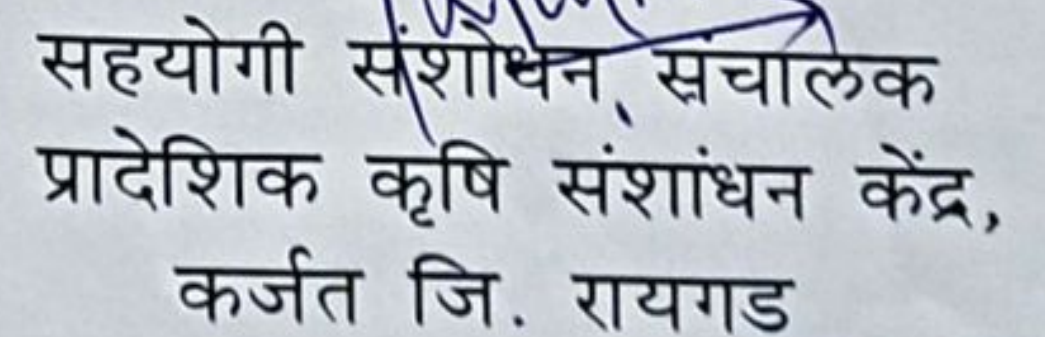 सहयोगी संशोधन संचालक
प्रादेशिक कृषि संशांधन केंद्र,
कर्जत जि. रायगड